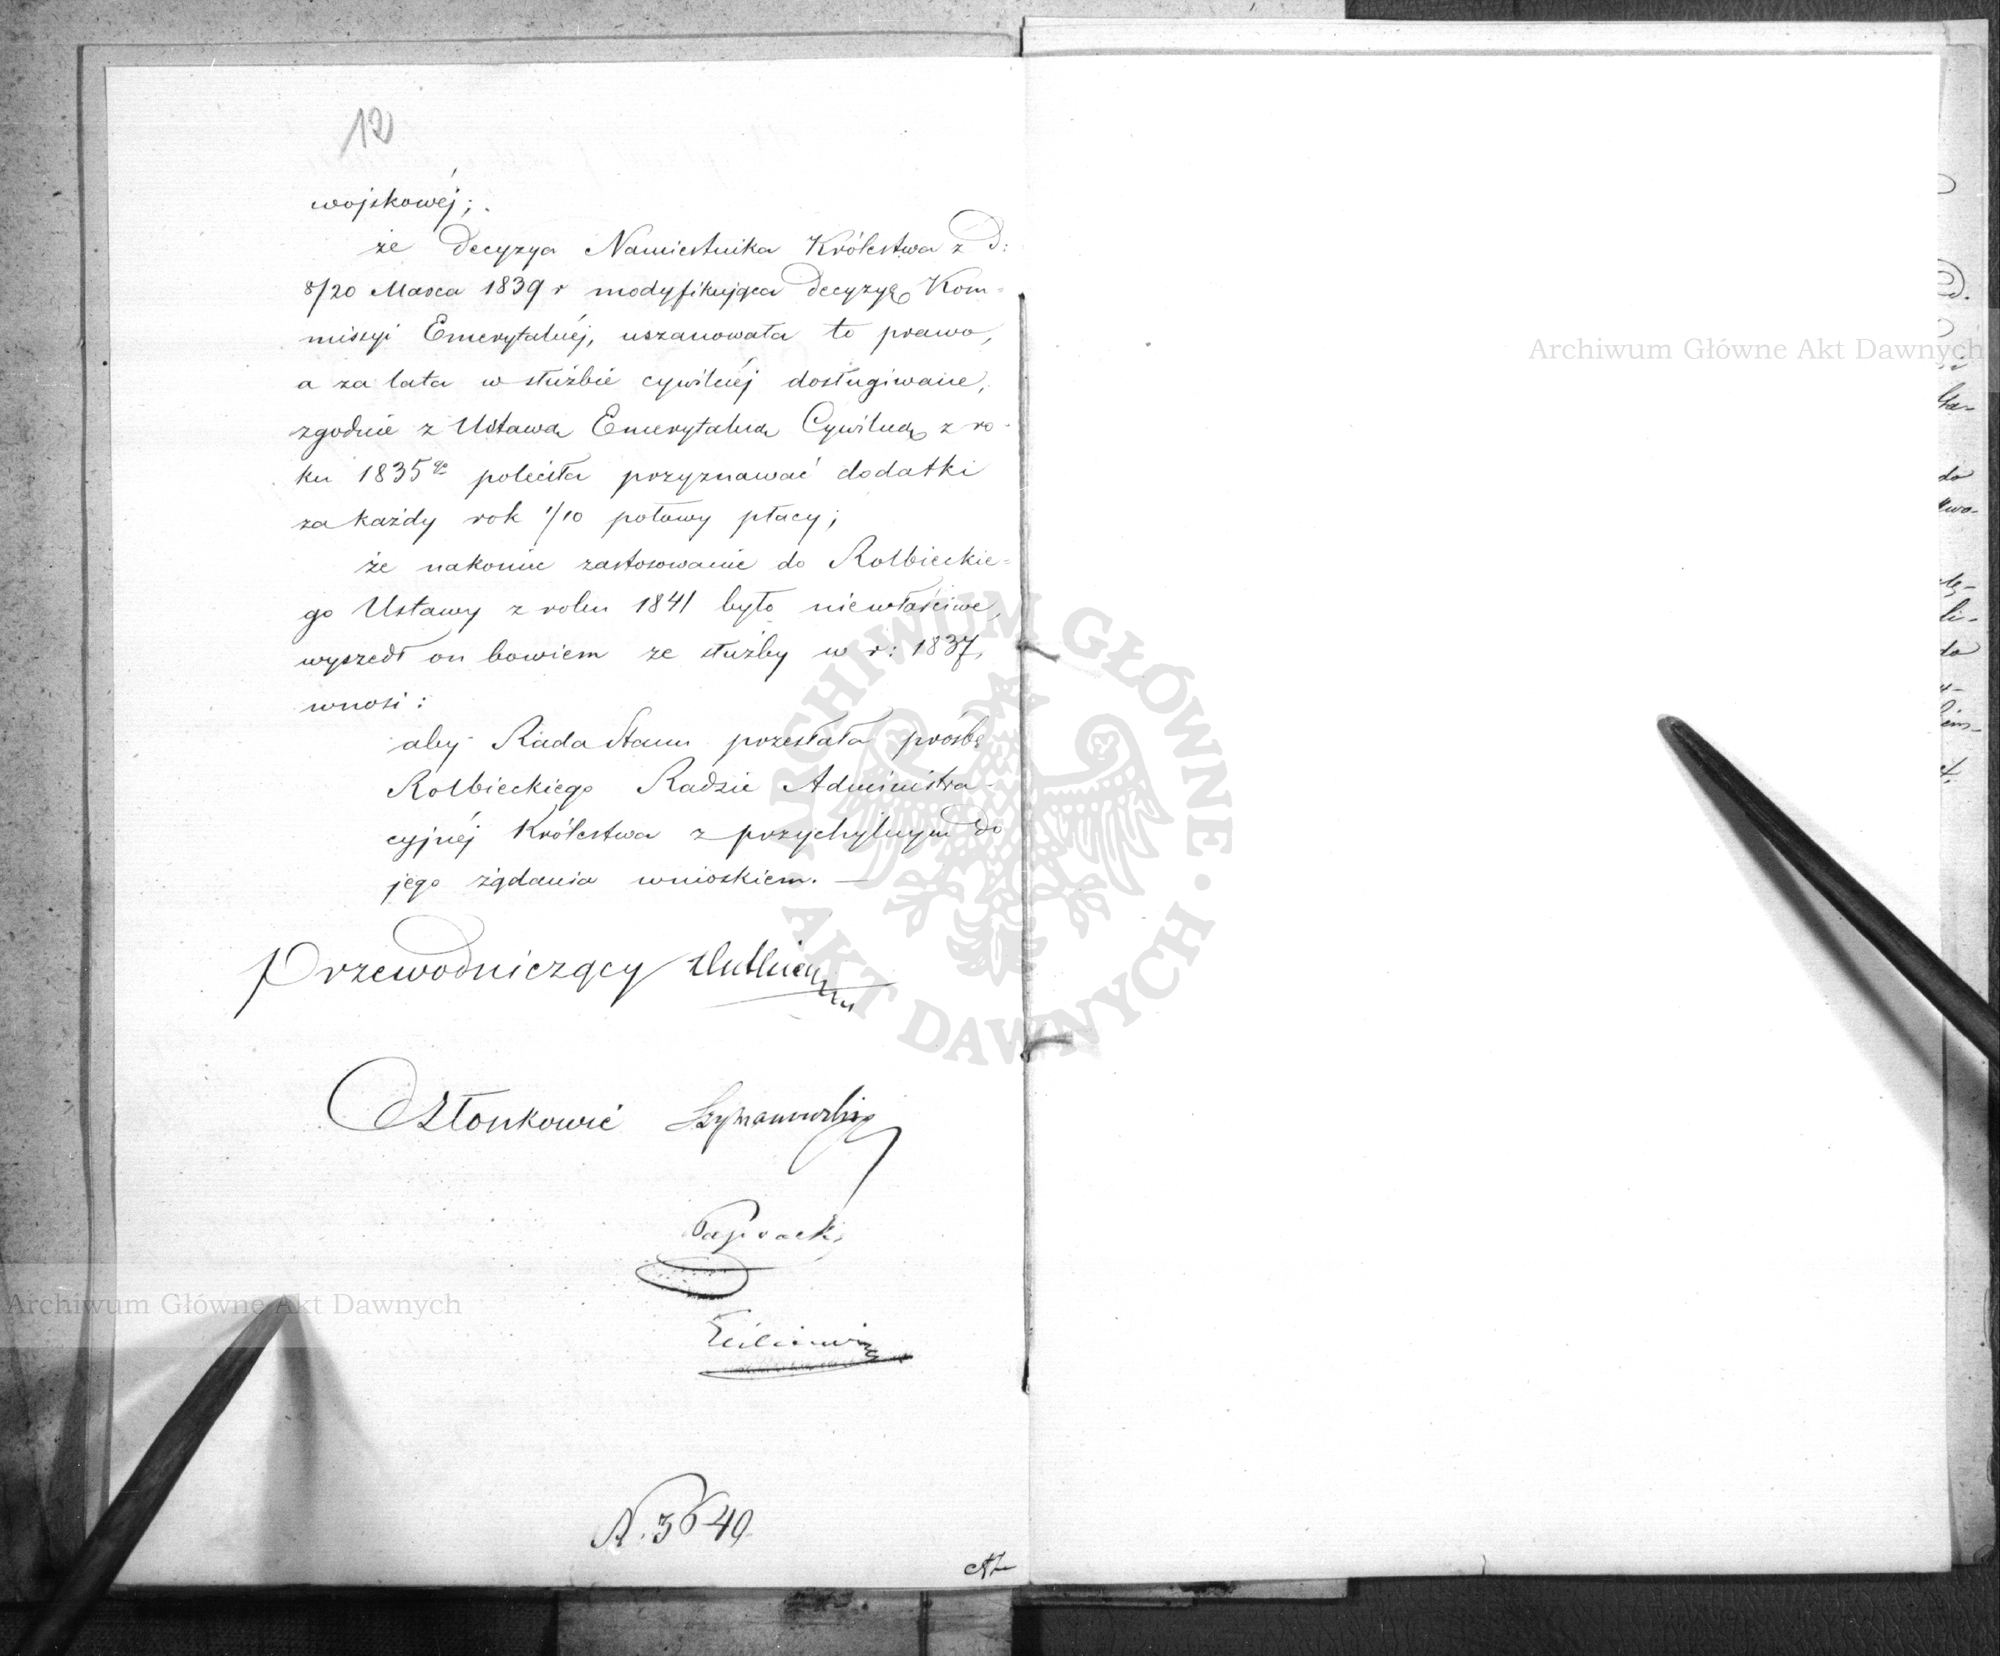 12
wojskowéj;
że decyzya Namiestnika Królestwa z d:
8/20 Marca 1839 r modyfikująca decyzyę Kom=
missyi Emerytalnéj, uszanowała to prawo,
a za lata w służbie cywilnéj dosługiwane,
zgodnie z Ustawą Emerytalną Cywilną z ro-
ku 1835 poleciła przyznawać dodatki
za każdy rok 1/10 połowy płacy;
że nakoniec zastosowanie do Rolbieckie=
go Ustawy z roku 1841 było niewłaściwe,
wyszedł on bowiem ze służby w r: 1837,
wnosi:
aby Rada Stanu przesłała prośbę
Rolbieckiego Radzie Administra-
cyjnéj Królestwa z przychylnym do
jego żądania wnioskiem. —
Przewodniczący
Członkowie Szymanowski
Paprocki
N. 3640
ARCHIWUM GŁÓWNE
AKT DAWNYCH
Archiwum Główne Akt Dawnych
Archiwum Główne Akt Dawnych